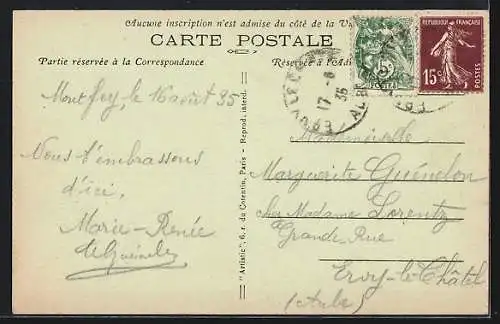 Aucune inscription n'est admise du côté de la
CARTE POSTALE
Partie réservée à la Correspondance
Réservée à l'Ad
RÉPUBLIQUE FRANÇAISE
15c
POSTES
17-8
35
Montfey le 16 août 35
Nous t'embrassons
d'ici,
Marie-Renée
"Artistic" 6, r. du Cotentin, Paris - Reprod. interd.
Mademoiselle
Marguerite Guénelon
chez Madame Lorentz
Grande Rue
Ervy-le-Châtel
(Aube)